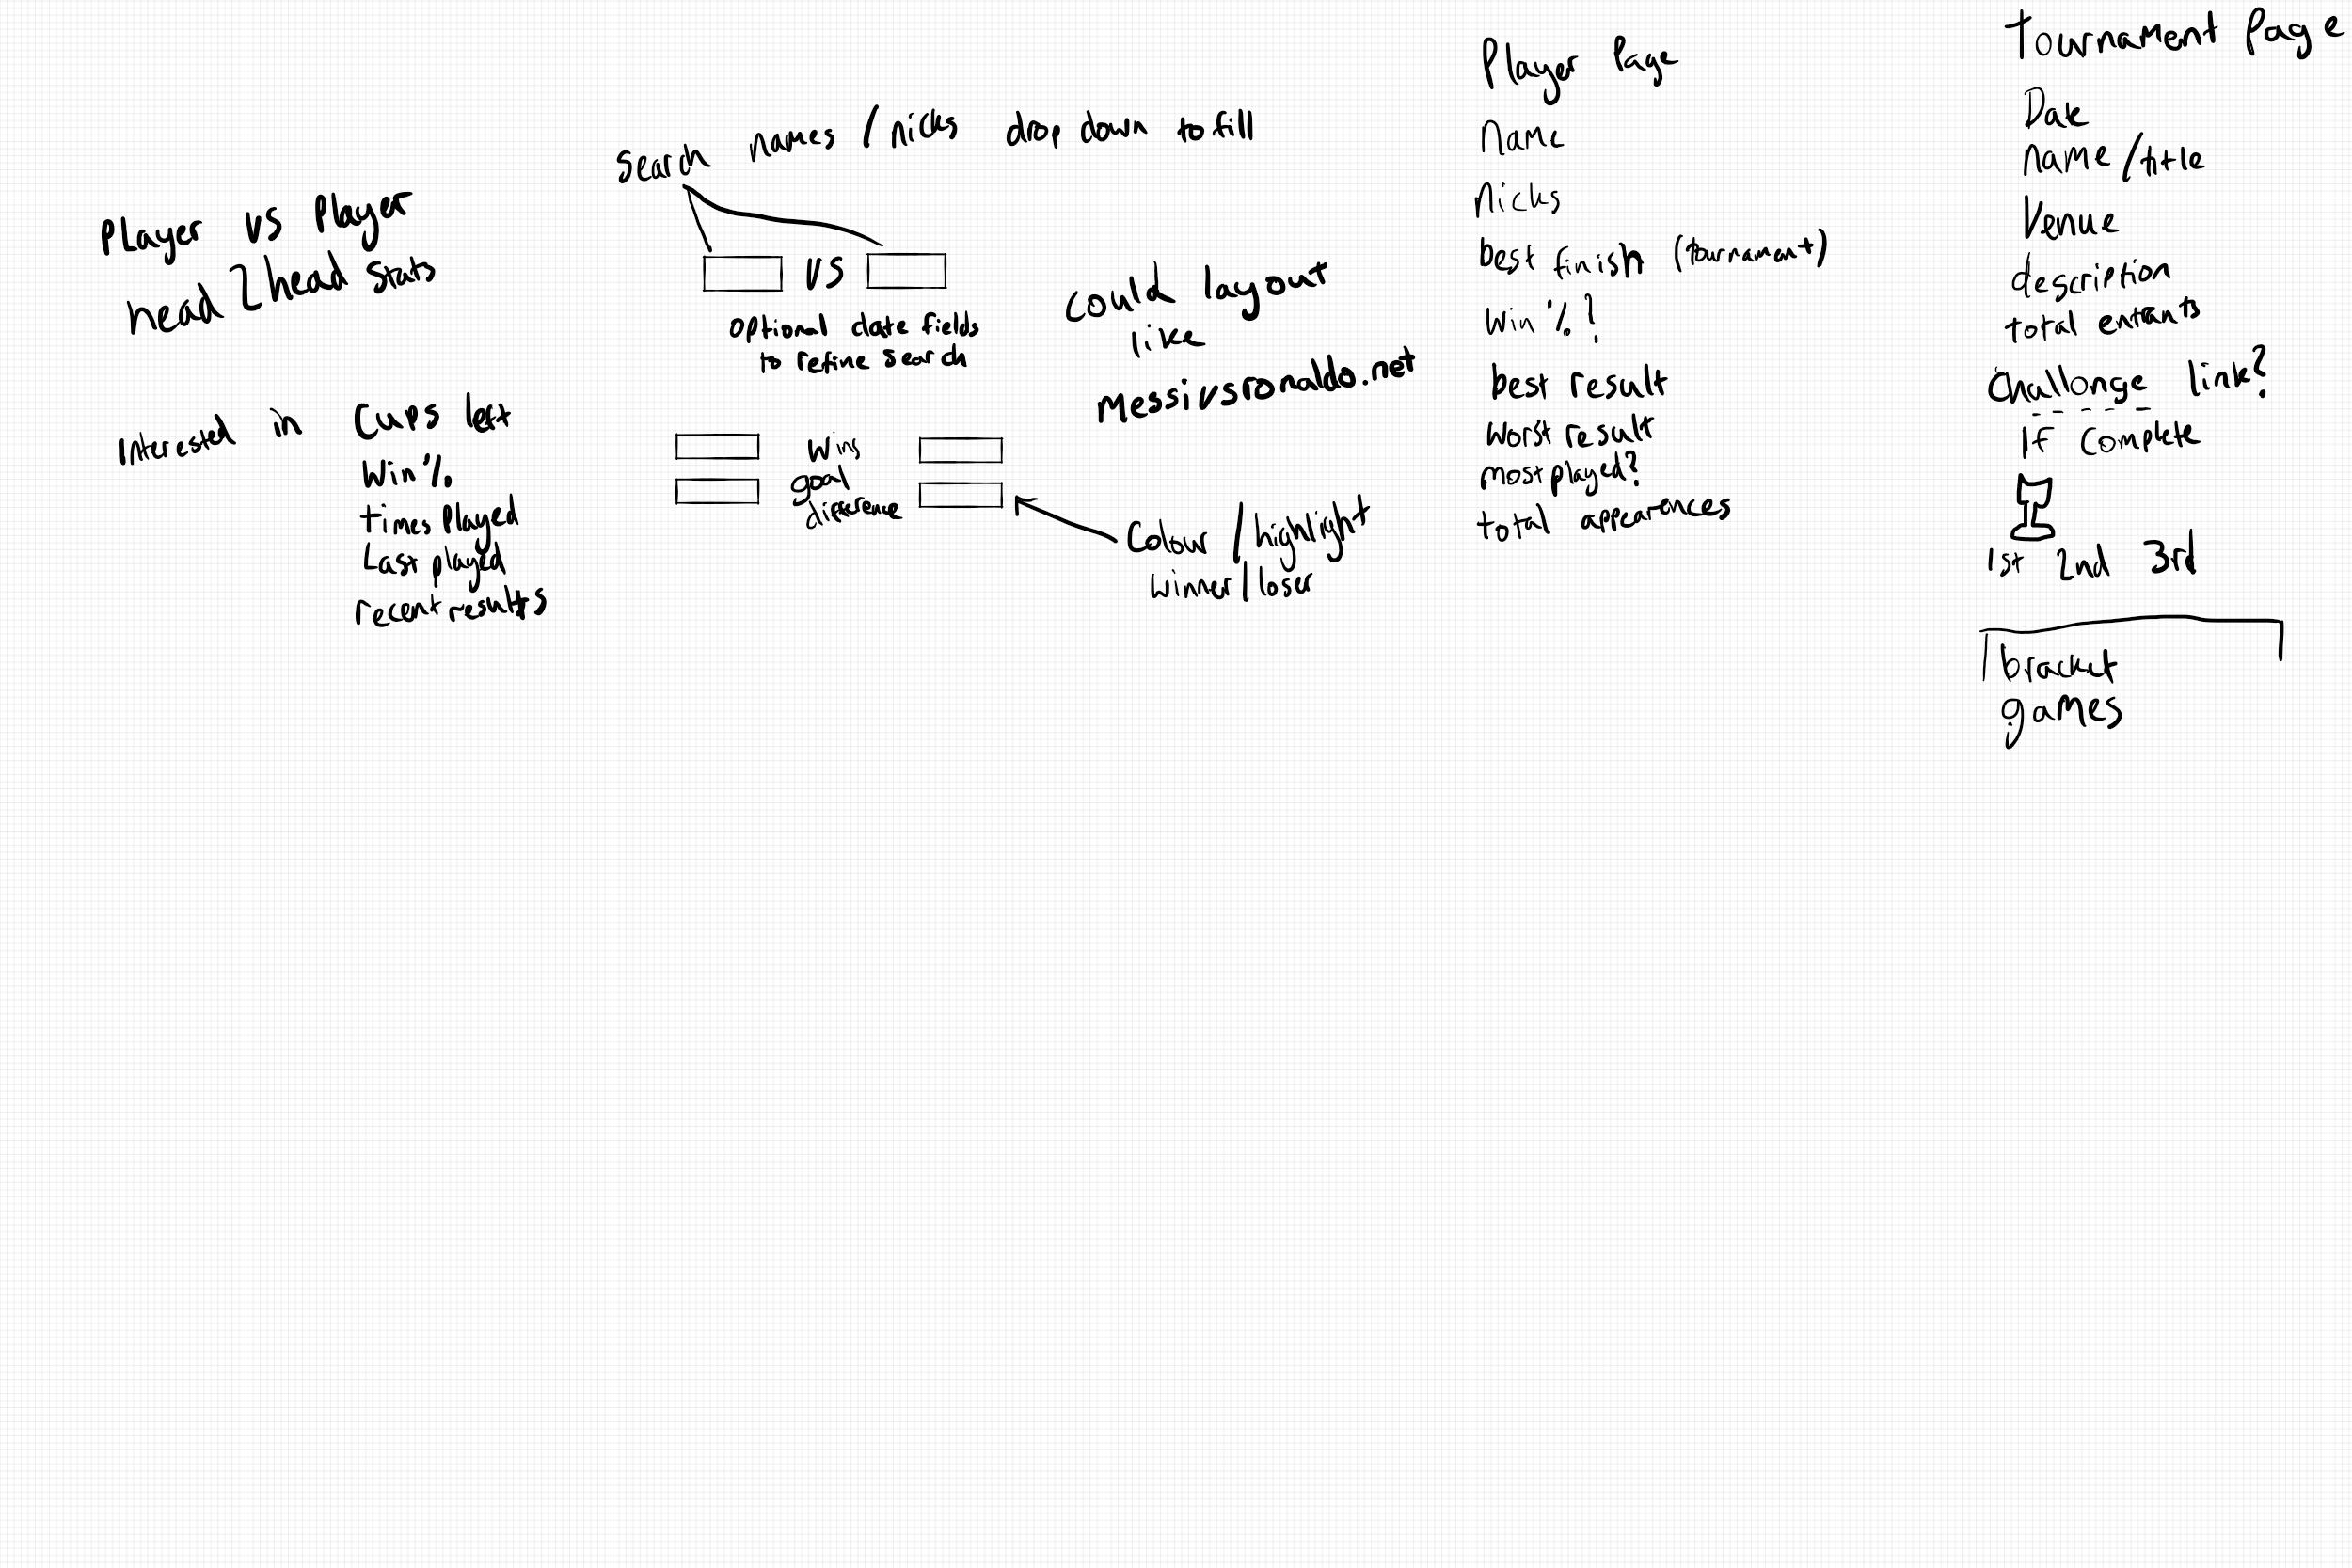 Player vs Player
head 2 head stats
Interested in Cups left
Win %
times Played
Last played
recent results
Search names / nicks drop down to fill
VS
optional date fields
to refine search
Could layout
like
messivsronaldo.net
Wins
goal
difference
Colour / highlight
winner / loser
Player Page
Name
Nicks
best finish (tournament)
Win %?
best result
Worst result
most played?
total appearences
Tournament Page
Date
name / title
Venue
description
total entrants
Challonge link?
If Complete
1st 2nd 3rd
bracket
games